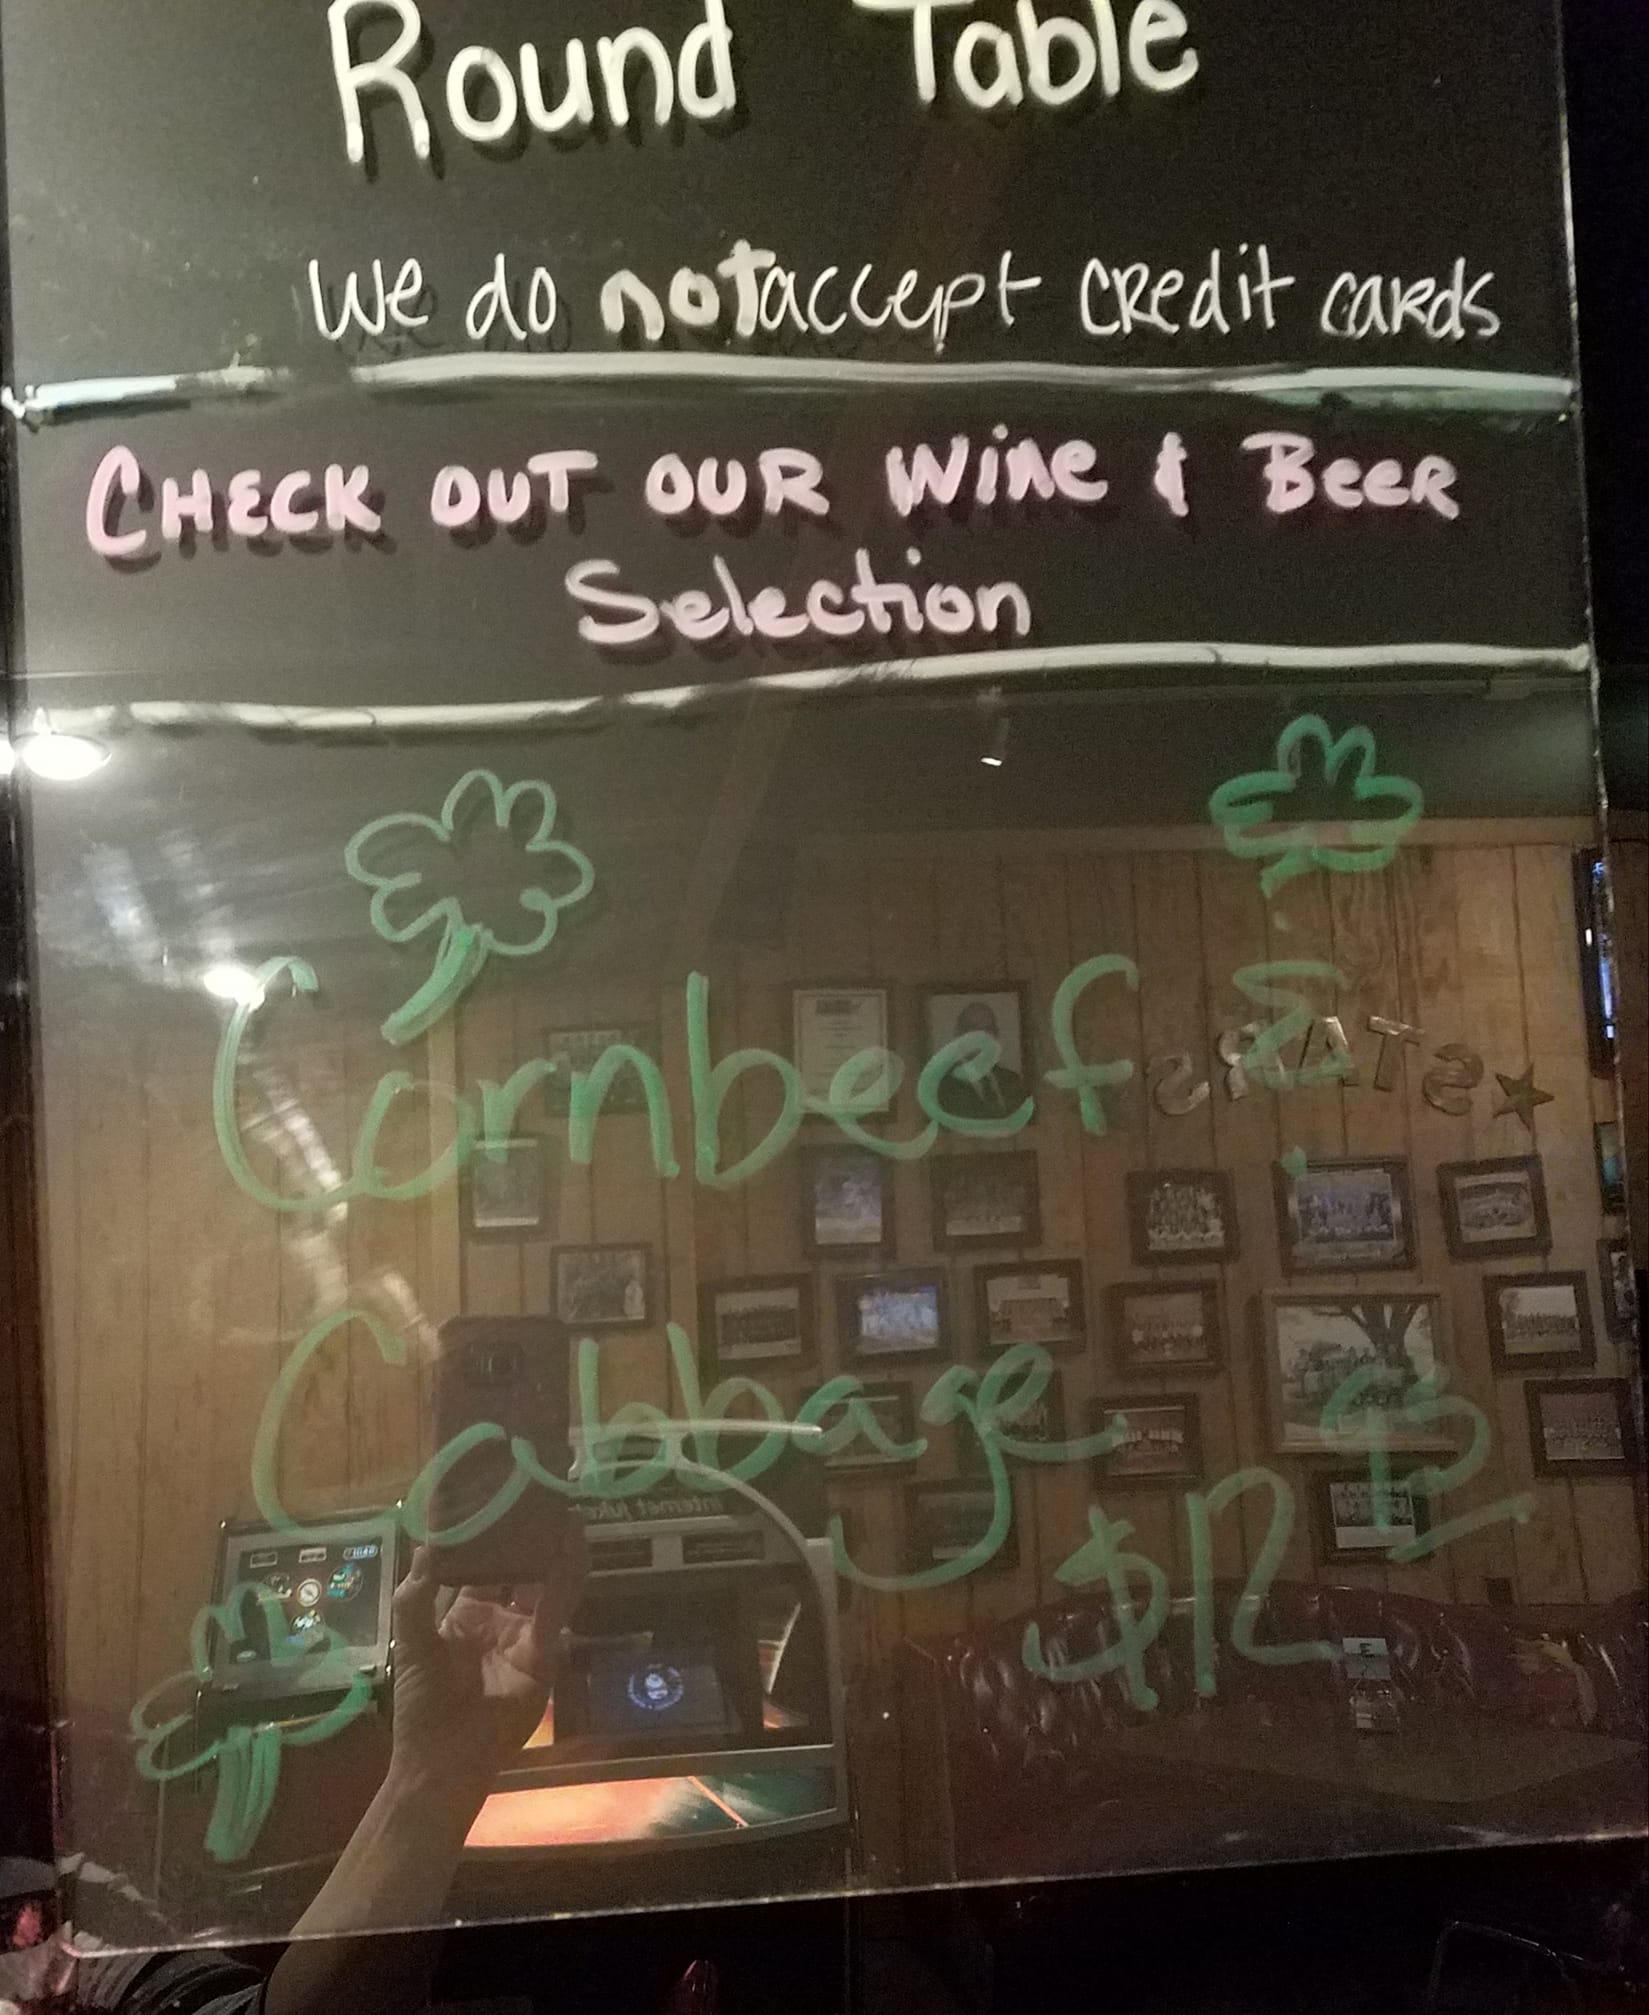 Round Table
We do not accept credit cards
CHECK OUT OUR WINE & BEER
Selection
Cornbeef &
Cabbage
$12 95
STARS
internet juke